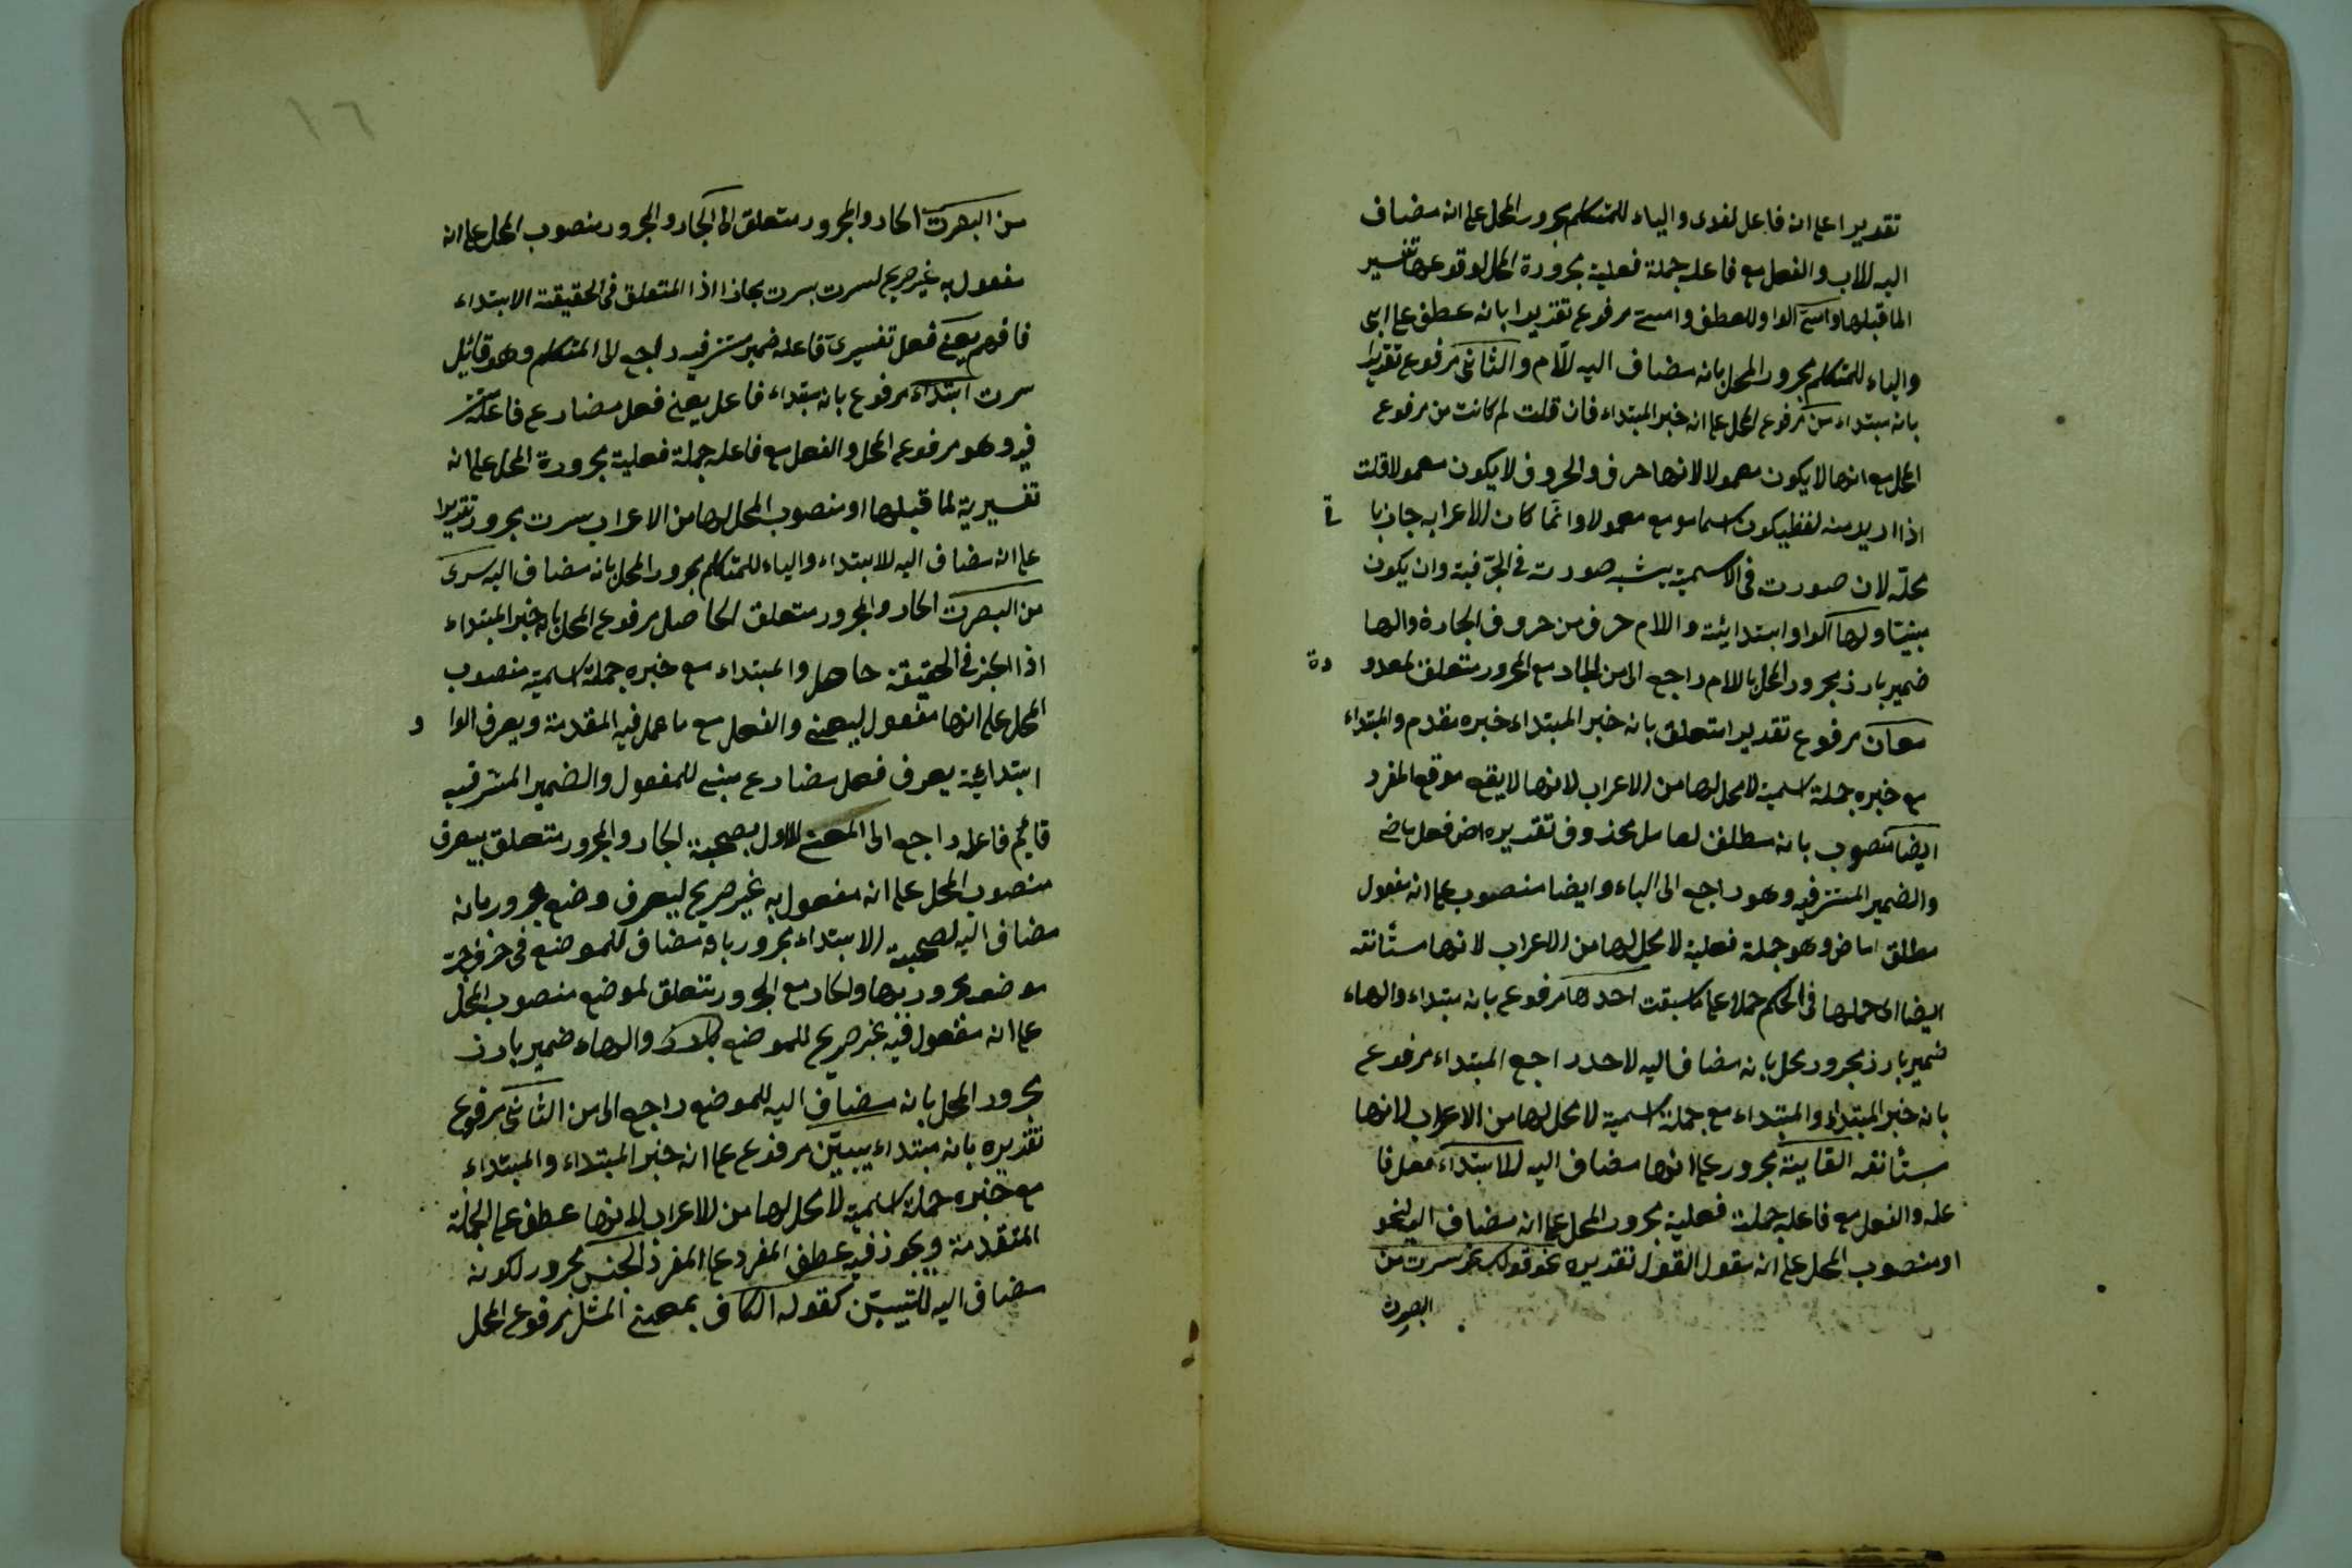 تقديرا على ان فاعل لفدى والياء للمتكلم مجرور المحل على انه مضاف
اليه للاب والفعل مع فاعله جملة فعلية مجرورة المحل لوقوعها تفسير
لما قبلها وامى الواو للعطف وامى مرفوع تقديرا بانه عطف على ابى
والياء للمتكلم مجرور المحل بانه مضاف اليه للام والثانى مرفوع تقديرا
بانه مبتداء من مرفوع المحل على انه خبر المبتداء فان قلت لم كانت من مرفوع
المحل مع انها لا يكون معمولا لانها حرف والحروف لا يكون معمولا قلت
اذا اريد منه لفظ يكون اسما مو مع معمولا وانما كان للاعراب جازبا
محله لان صورت فى الاسمية يشبه صورت فى الحرفية وان يكون
مبنيا ولها الواو ابتدايئة واللام حرف من حروف الجارة والها
ضمير بارز مجرور المحل باللام راجع الى من الجار مع المجرور متعلق لمعدو
دة
معان مرفوع تقديرا متعلق بانه خبر المبتداء خبره مقدم والمبتداء
مع خبره جملة اسمية لا محل لها من الاعراب لانها لا يقع موقع المفرد
ايضا منصوب بانه مطلق لعامل محذوف تقديره اض فعل ماض
والضمير المستتر فيه وهو راجع الى الياء وايضا منصوب على انه مفعول
مطلق اماض وهو جملة فعلية لا محل لها من الاعراب لانها مستأنفه
ايضا اى حملها فى الحكم حملا على ما سبقت احدها مرفوع بانه مبتداء والهاء
ضمير بارز مجرور محل بانه مضاف اليه لاحد راجع المبتداء مرفوع
بانه خبر المبتداء والمبتداء مع جملة اسمية لا محل لها من الاعراب لانها
مستأنفه الغاية مجرور على انها مضاف اليه للابتداء فعل فا
عله والفعل مع فاعله جملت فعلية مجرور المحل على انه مضاف اليه لنحو
او منصوب المحل على انه مقول القول تقديره نحو قولك نحو سرت من
البصرة
١٦
من البصرت الجار والمجرور متعلق الى الجار والمجرور منصوب المحل على انه
مفعول به غير صريح لسرت بسرت مجازا اذ المتعلق فى الحقيقة الابتداء
فافهم يعنى فعل تفسيرى فاعله ضمير مستتر فيه راجع الى المتكلم وهو قائيل
سرت ابتداء مرفوع بانه مبتداء فاعل يعنى فعل مضارع فاعله مستتر
فيه وهو مرفوع المحل والفعل مع فاعله جملة فعلية مجرورة المحل على انه
تفسيرية لما قبلها او منصوب المحل لها من الاعراب سرت مجرور تقديرا
على انه مضاف اليه للابتداء والياء للمتكلم مجرور المحل بانه مضاف اليه سرى
من البصرت الجار والمجرور متعلق الحاصل مرفوع المحل بانه خبر المبتداء
اذ الخبر فى الحقيقة حاصل والمبتداء مع خبره جملة اسمية منصوب
المحل على انها مفعول ليعنى والفعل مع ما عمل فيه المقدمة ويعرف الوا و
ابتدايئة يعرف فعل مضارع مبنى للمفعول والضمير المستتر فيه
قايم فاعله راجع الى المعنى الاول بصحة الجار والمجرور متعلق بيعرف
منصوب المحل على انه مفعول به غير صريح ليعرف وضع مجرور بانه
مضاف اليه لصحة الابتداء مجرور بانه مضاف للموضع فى حرف جر
موضعه مجرور بها والجار مع المجرور متعلق لموضع منصوب المحل
على انه مفعول فيه غير صريح للموضع والهاء ضمير بارز
مجرور المحل بانه مضاف اليه للموضع راجع الى من الثانى مرفوع
تقديره بانه مبتداء يبين مرفوع على انه خبر المبتداء والمبتداء
مع خبره جملة اسمية لا محل لها من الاعراب لانها عطف على الجملة
المتقدمة ويجوز فيه عطف المفرد على المفرد الجنس مجرور لكونه
مضاف اليه للتبيين كقوله الكاف بمعنى المثل مرفوع المحل